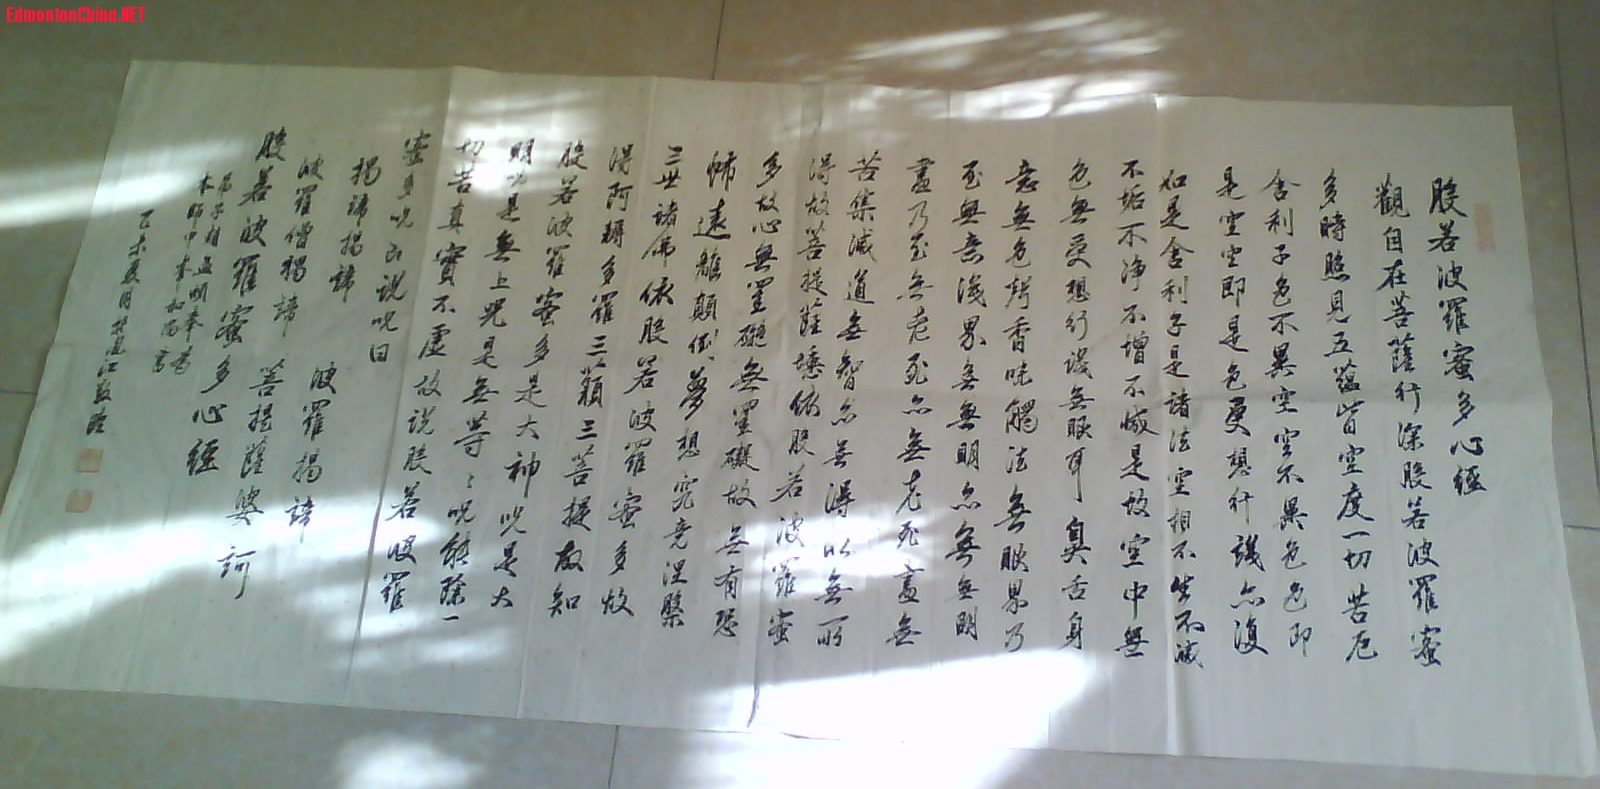 EdmontonChina.NET
般若波羅蜜多心經
觀自在菩薩行深般若波羅蜜
多時照見五蘊皆空度一切苦厄
舍利子色不異空空不異色色即
是空空即是色受想行識亦復
如是舍利子是諸法空相不生不滅
不垢不净不增不減是故空中無
色無受想行識無眼耳鼻舌身
意無色聲香味觸法無眼界乃
至無意識界無無明亦無無明
盡乃至無老死亦無老死盡無
苦集滅道無智亦無得以無所
得故菩提薩埵依般若波羅蜜
多故心無罣礙無罣礙故無有恐
怖遠離顛倒夢想究竟涅槃
三世諸佛依般若波羅蜜多故
得阿耨多羅三藐三菩提故知
般若波羅蜜多是大神咒是大
明咒是無上咒是無等々咒能除一
切苦真實不虛故说般若波羅
蜜多咒即说咒曰
揭諦揭諦 波羅揭諦
波羅僧揭諦 菩提薩婆訶
般若波羅蜜多心經